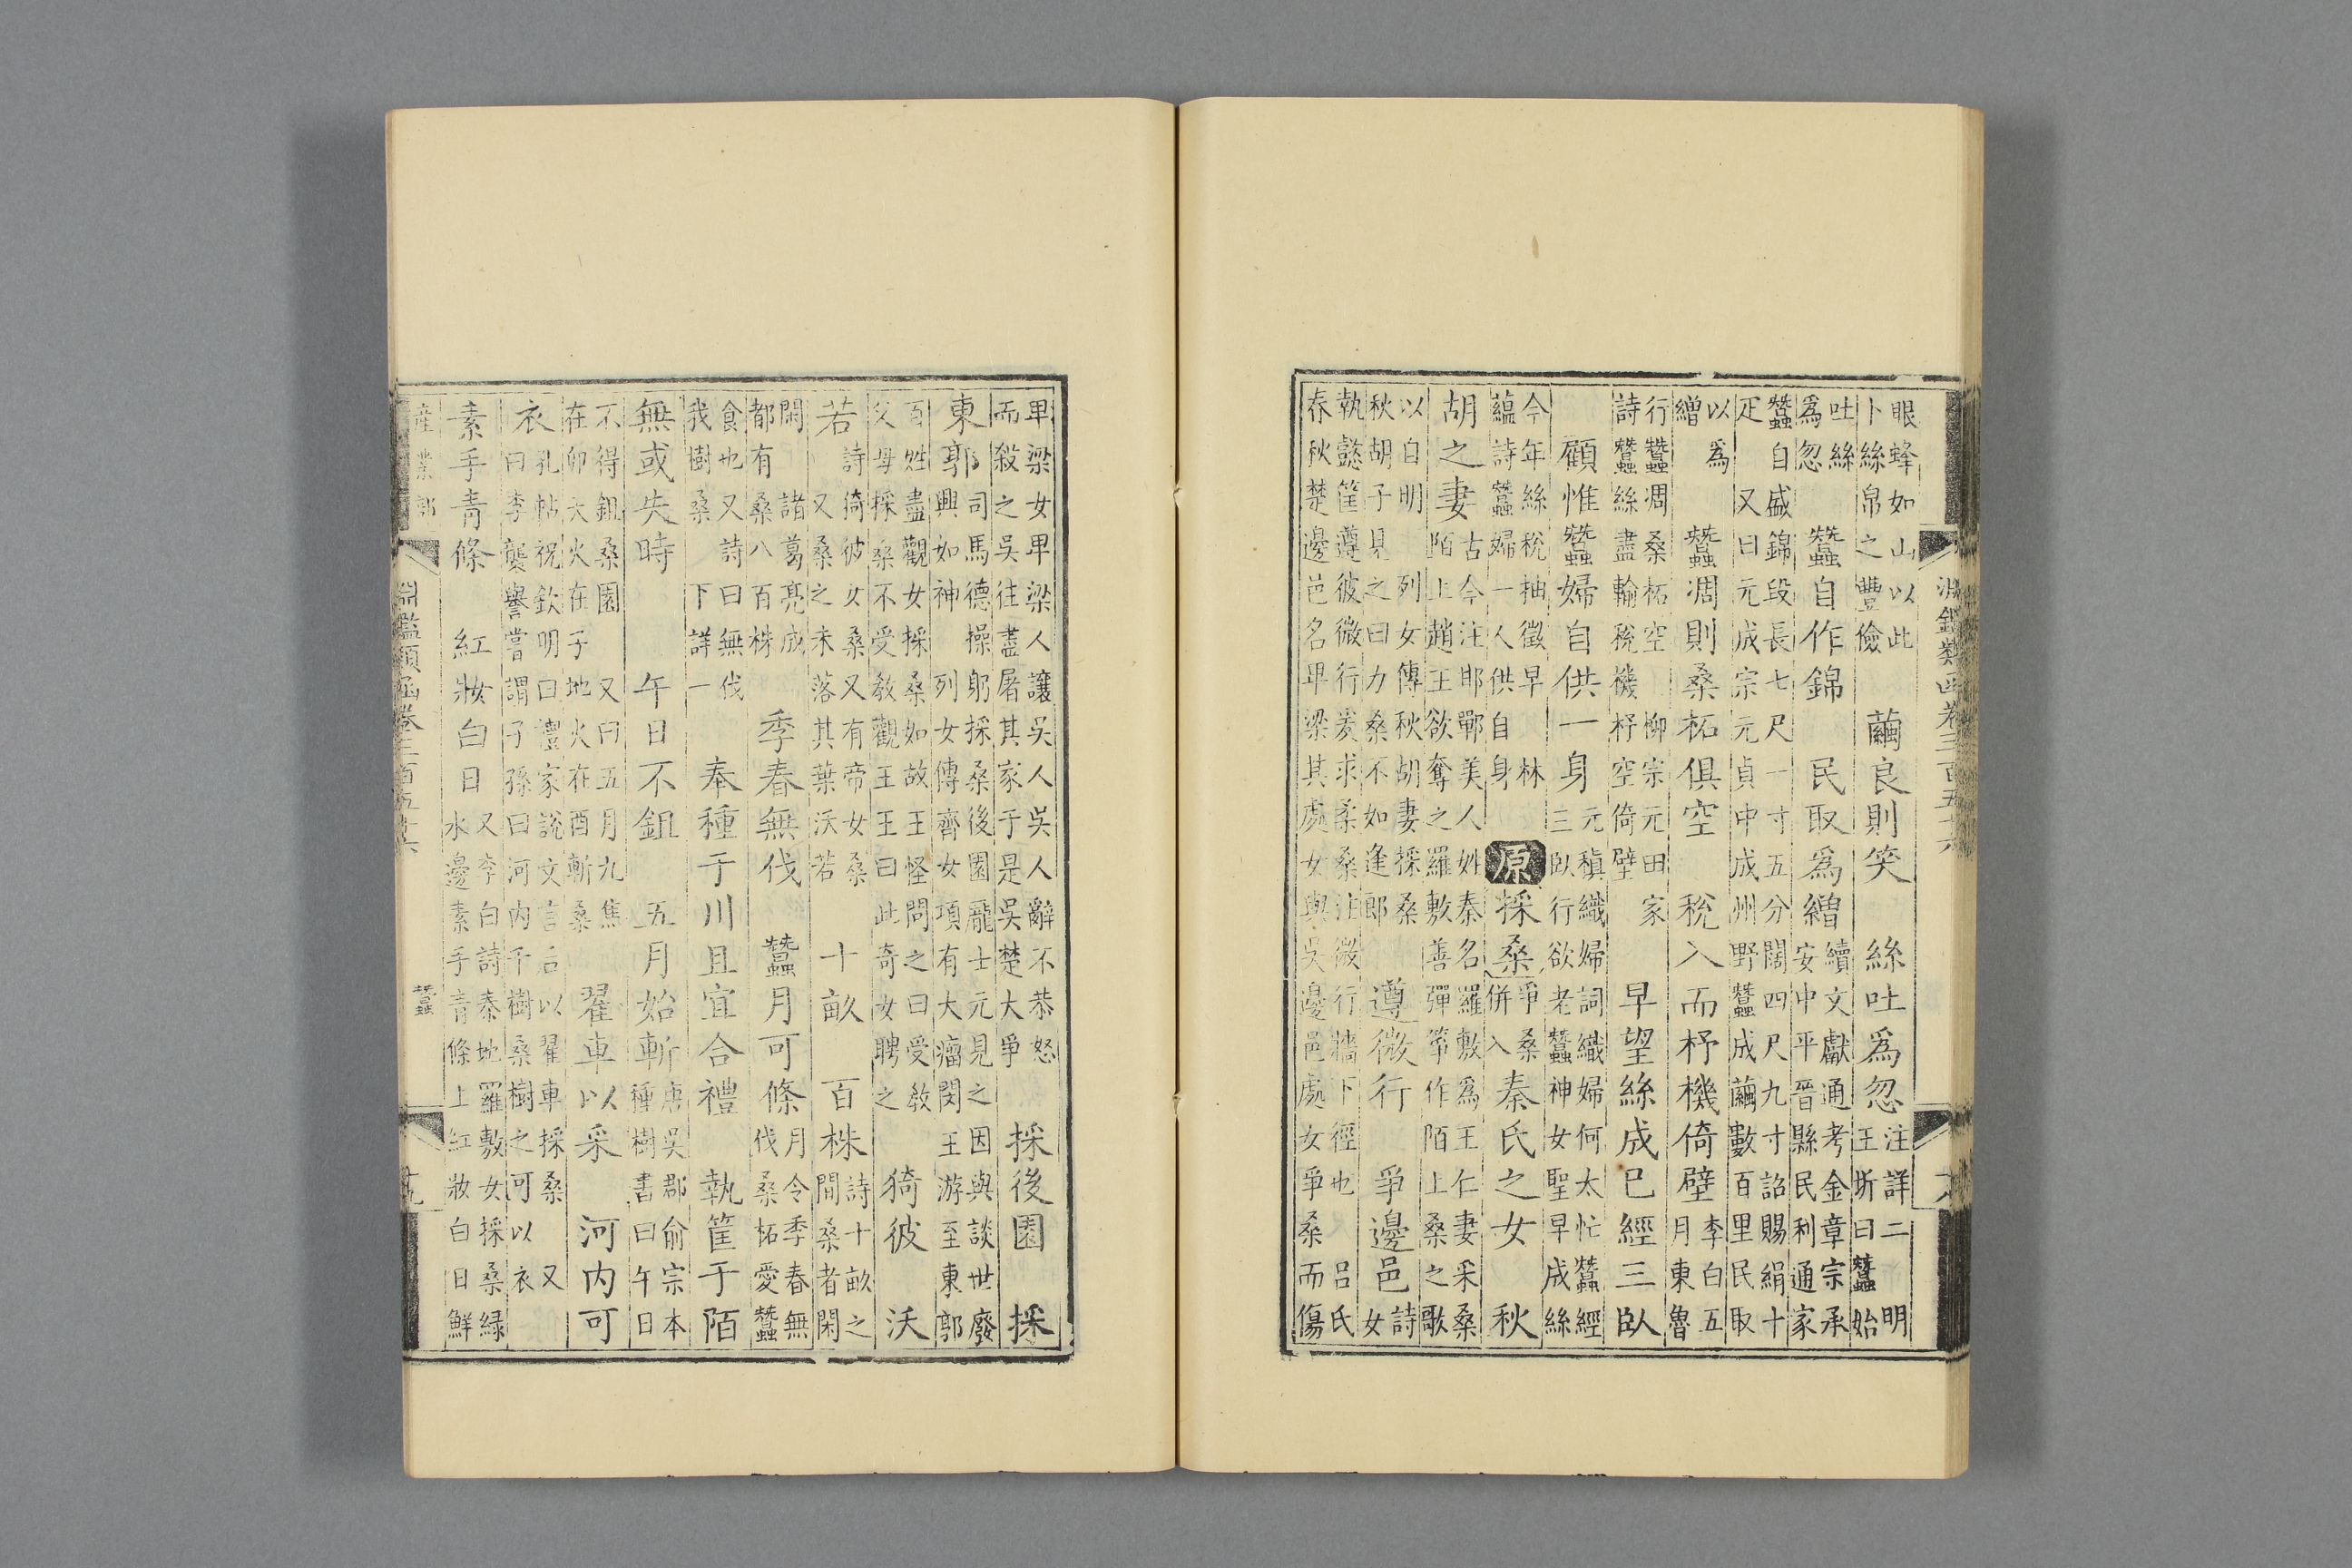 淵鑑類函卷三百五十六
眼蜂如山以此卜絲帛之豐儉 繭良則笑 絲吐爲忽 注詳二 明王斯曰蠶始
吐絲爲忽 蠶自作錦 民取爲繒 續文獻通考金章宗承安中平晉縣民利通家
蠶自盛錦段長七尺一寸五分闊四尺九寸詔賜絹十疋 又曰元成宗元貞中成州野蠶成繭數百里民取
以爲繒 蠶凋則桑柘俱空 稅入而杼機倚壁 李白五月東魯
行蠶凋桑柘空 柳宗元田家詩蠶絲盡輸稅機杼空倚壁 早望絲成已經三臥
顧惟蠶婦自供一身 元稹織婦詞織婦何太忙蠶經三臥行欲老蠶神女聖早成絲
今年絲稅抽徵早 林蘊詩蠶婦一人供自身 原採桑 爭桑併入 秦氏之女 秋
胡之妻 古今注邯鄲美人姓秦名羅敷爲王仁妻采桑陌上趙王欲奪之羅敷善彈筝作陌上桑之歌
以自明 列女傳秋胡妻採桑秋胡子見之曰力桑不如逢郎 遵微行 爭邊邑 詩女
執懿筐遵彼微行爰求柔桑注微行牆下徑也 呂氏春秋楚邊邑名卑梁其處女與吳邊邑處女爭桑而傷
卑梁女卑梁人讓吳人吳人辭不恭怒而殺之吳往盡屠其家于是吳楚大爭 採後園 採
東郭 司馬德操躬採桑後園龐士元見之因與談世廢興如神 列女傳齊女項有大瘤閔王游至東郭
百姓盡觀女採桑如故王怪問之曰受教父母採桑不受教觀王王曰此奇女聘之 猗彼 沃
若 詩猗彼女桑又有帝女桑又桑之未落其葉沃若 十畝 百株 詩十畝之間桑者閑
閑 諸葛亮成都有桑八百株 季春無伐 蠶月可條 月令季春無伐桑柘愛蠶
食也又詩曰無伐我樹桑 下詳一 奉種于川且宜合禮 執筐于陌
無或失時 午日不鉏 五月始斬 唐吳郡俞宗本種樹書曰午日
不得鉏桑園 又曰五月九焦在卯大火在子地火在酉斬桑 翟車以采 河内可
衣 孔帖祝欽明曰禮家說文言后以翟車採桑 又曰李襲譽嘗謂子孫曰河内千樹桑樹之可以衣
素手青條 紅妝白日 又李白詩秦地羅敷女採桑緑水邊素手青條上紅妝白日鮮
產業部 淵鑑類函卷三百五十六 蠶 十九